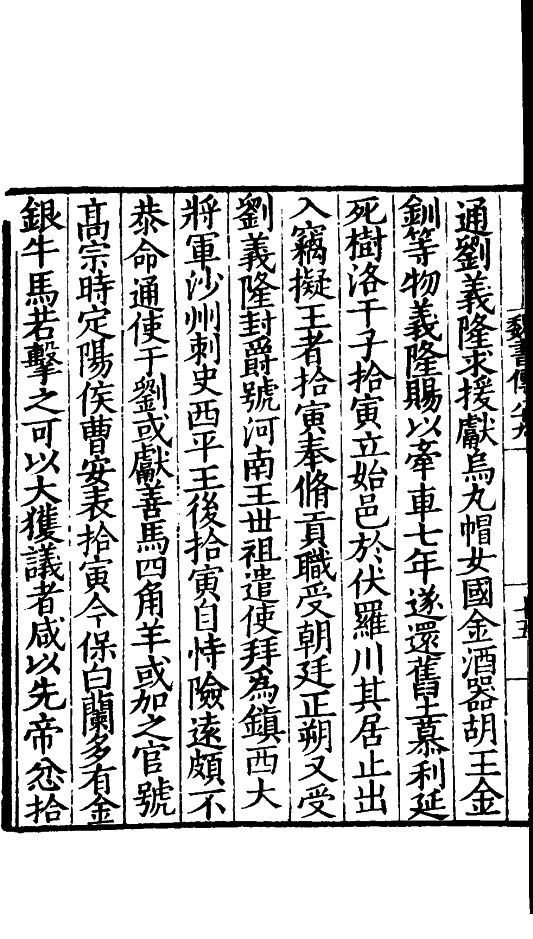 魏書傳八九
十五
通劉義隆求援獻烏丸帽女國金酒器胡王金
釧等物義隆賜以牽車七年遂還舊土慕利延
死樹洛干子拾寅立始邑於伏羅川其居止出
入竊擬王者拾寅奉脩貢職受朝廷正朔又受
劉義隆封爵號河南王世祖遣使拜為鎮西大
將軍沙州刺史西平王後拾寅自恃險遠頗不
恭命通使于劉彧獻善馬四角羊彧加之官號
高宗時定陽侯曹安表拾寅今保白蘭多有金
銀牛馬若擊之可以大獲議者咸以先帝忿拾